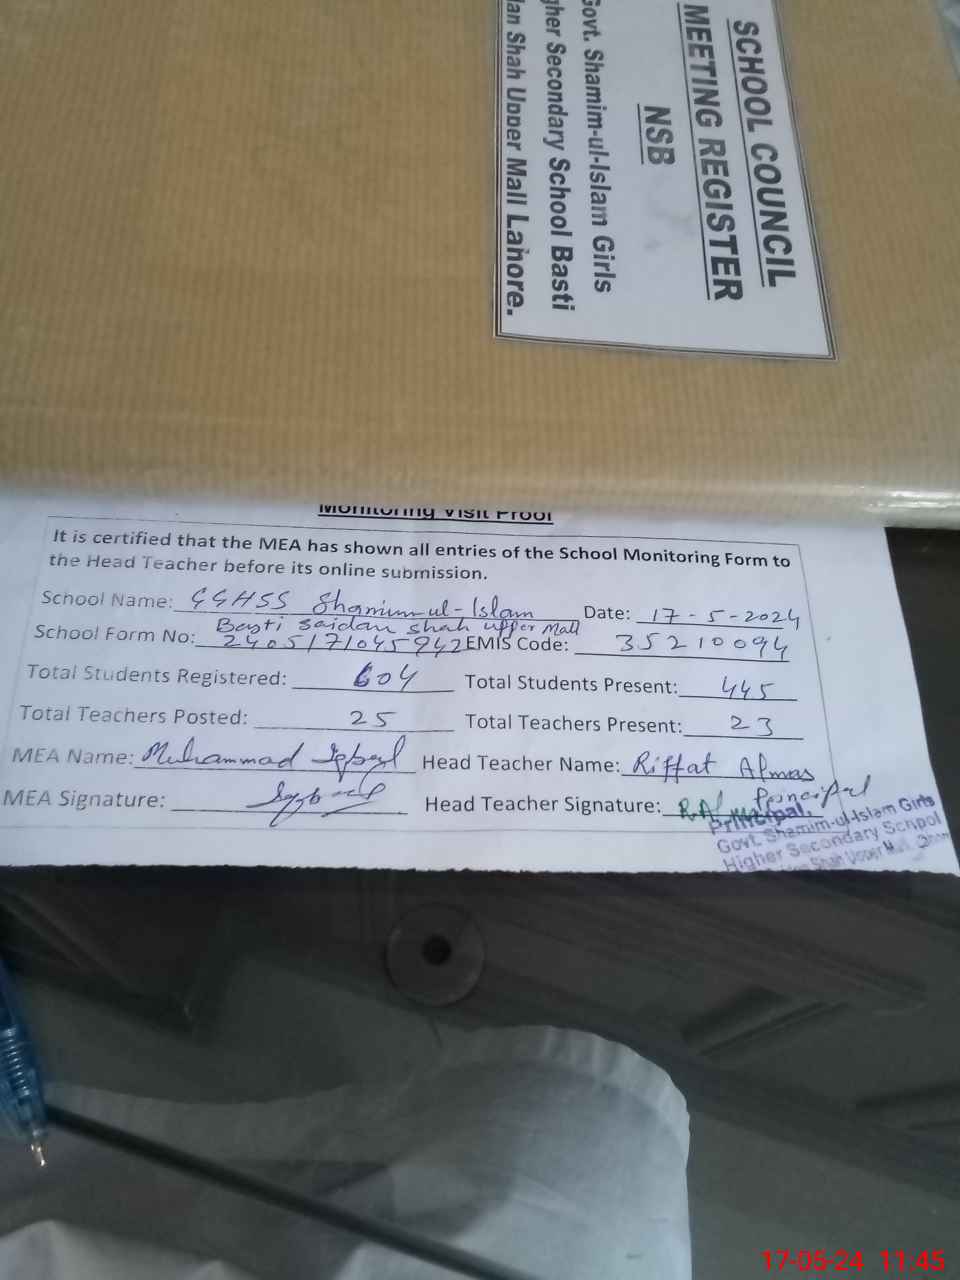 SCHOOL COUNCIL
MEETING REGISTER
NSB
Govt. Shamim-ul-Islam Girls
gher Secondary School Basti
dan Shah Upper Mall Lahore.
Monitoring Visit Proof
It is certified that the MEA has shown all entries of the School Monitoring Form to
the Head Teacher before its online submission.
School Name: GGHSS Shamim ul-Islam Date: 17-5-2024
Basti Saidan Shah upper Mall
School Form No: 2405171045942 EMIS Code: 35210094
Total Students Registered: 604 Total Students Present: 445
Total Teachers Posted: 25 Total Teachers Present: 23
MEA Name: Muhammad Iqbal Head Teacher Name: Riffat Almas
Principal
MEA Signature: Head Teacher Signature:
Principal.
Govt. Shamim-ul-Islam Girls
Higher Secondary School
Shah Upper Mall
17-05-24 11:45